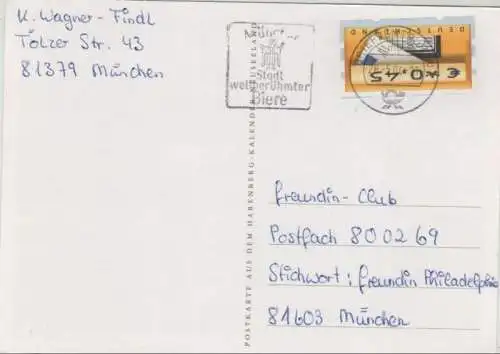 K. Wagner-Findl
Tölzer Str. 43
81379 München
Stadt
weltberühmter
Biere
DEUTSCHLAND
€ *0,45
POSTKARTE AUS DEM HARENBERG-KALENDER
freundin-Club
Postfach 800269
Stichwort: freundin Philadelphia
81603 München